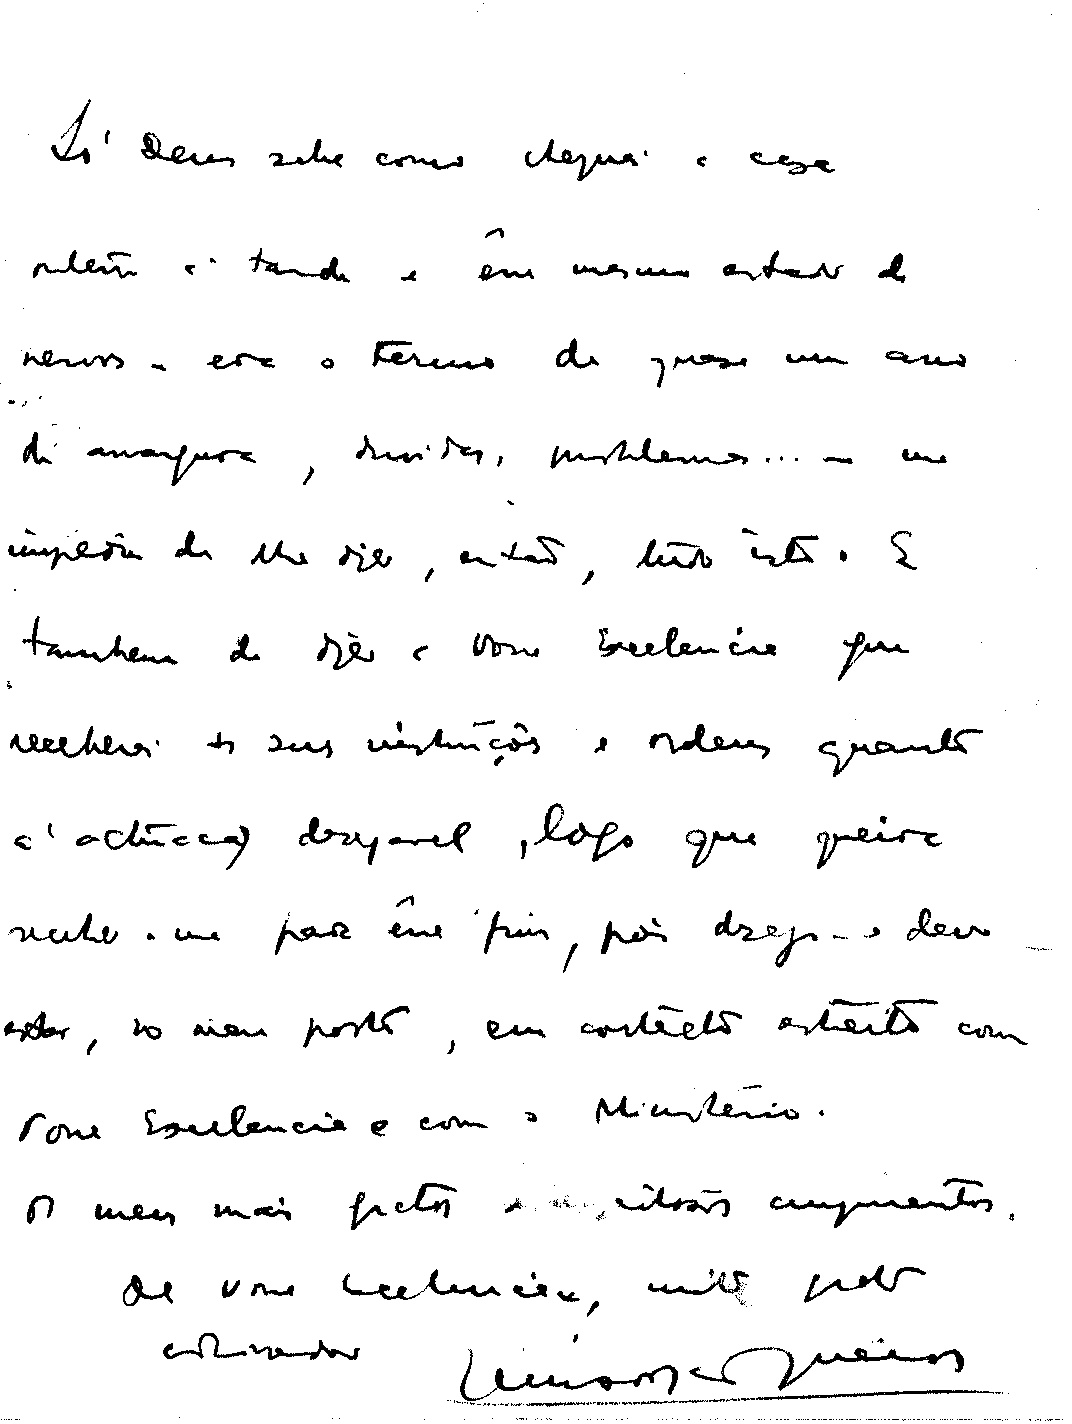 Só Deus sabe como cheguei a casa
ontem à tarde e êsse mesmo estado de
nervos - era o termo de quase um ano
de amargura, dúvidas, problemas... - me
impedia de lhe dizer, então, tudo isto. E
tambem de dizer a Vossa Excelencia que
receberei as suas instruções e ordens quanto
à actuação desejavel, logo que queira
receber-me para êsse fim, pois desejo - e devo
estar, no meu posto, em contacto estreito com
Vossa Excelencia e com o Ministério.
Os meus mais gratos e respeitosos cumprimentos.
De Vossa Excelencia, muito grato
admirador
Queiroz